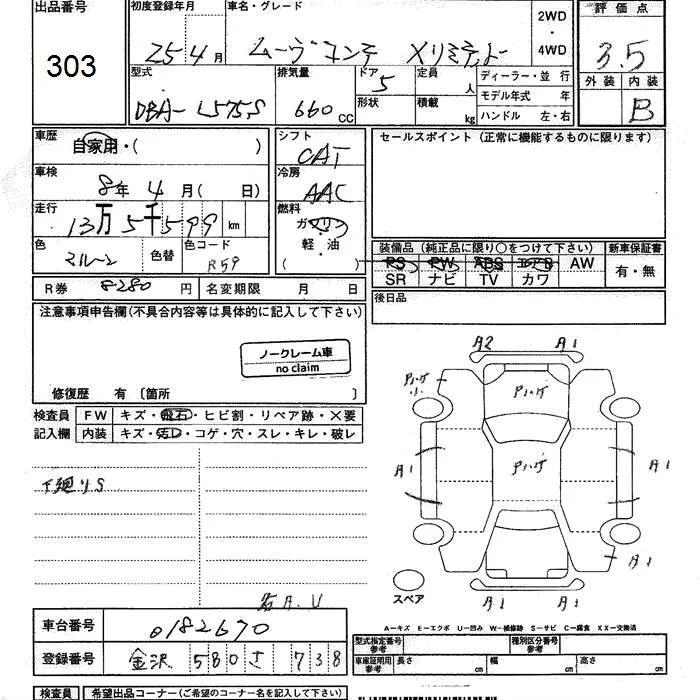 出品番号
303
初度登録年月
25年4月
車名・グレード
ムーヴコンテ Xリミテッド
2WD
・
4WD
評価点
3.5
外装 内装
B
型式
DBA-L575S
排気量
660 CC
ドア
5
形状
定員
人
積載
kg
ディーラー・並行
モデル年式 年
ハンドル 左・右
車歴
自家用・( )
車検
8年4月(日)
走行
13万5千599km
色
マルーン
色替
色コード
R59
シフト
CAT
冷房
AAC
燃料
ガソリン
・
軽・油
( )
セールスポイント(正常に機能するものに限ります)
装備品(純正品に限り〇をつけて下さい)
新車保証書
PS PW ABS エアB AW
SR ナビ TV カワ
有・無
R券 8280円
名変期限 月 日
後日品
注意事項申告欄(不具合内容等は具体的に記入して下さい)
ノークレーム車
no claim
修復歴 有〔箇所 〕
検査員
記入欄
FW キズ・飛石・ヒビ割・リペア跡・×要
内装 キズ・汚レ・コゲ・穴・スレ・キレ・破レ
下廻りS
A2 A1
Pハゲ
小
Pハゲ
Pハゲ
A1 A1
A1
A1 A1
スペア
A-キズ E-エクボ U-凹み W-補修跡 S-サビ C-腐食 XX-交換済
車台番号
0182670
登録番号
金沢 580 738
型式指定番号
参考
種別区分番号
参考
車庫証明用
参考
長さ cm
幅 cm
高さ cm
検査員
希望出品コーナー(ご希望のコーナー名を記入して下さい)